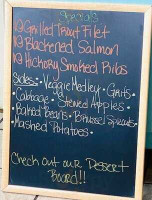 Specials
Grilled Trout Filet
Blackened Salmon
Hickory Smoked Ribs
Sides: • Veggie Medley • Grits •
• Cabbage • Stewed Apples •
Baked Beans • Brussel Sprouts •
• Mashed Potatoes •
Check out our Dessert
Board!!